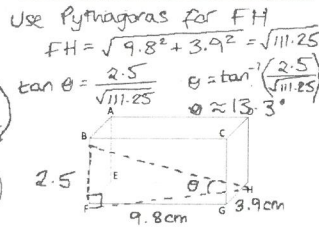 Use Pythagoras for FH
FH = √9.8² + 3.9² = √111.25
tan θ = 2.5/√111.25 θ = tan⁻¹(2.5/√111.25)
θ ≈ 13.3°
A
B C
2.5 E
θ H
F G 3.9cm
9.8cm